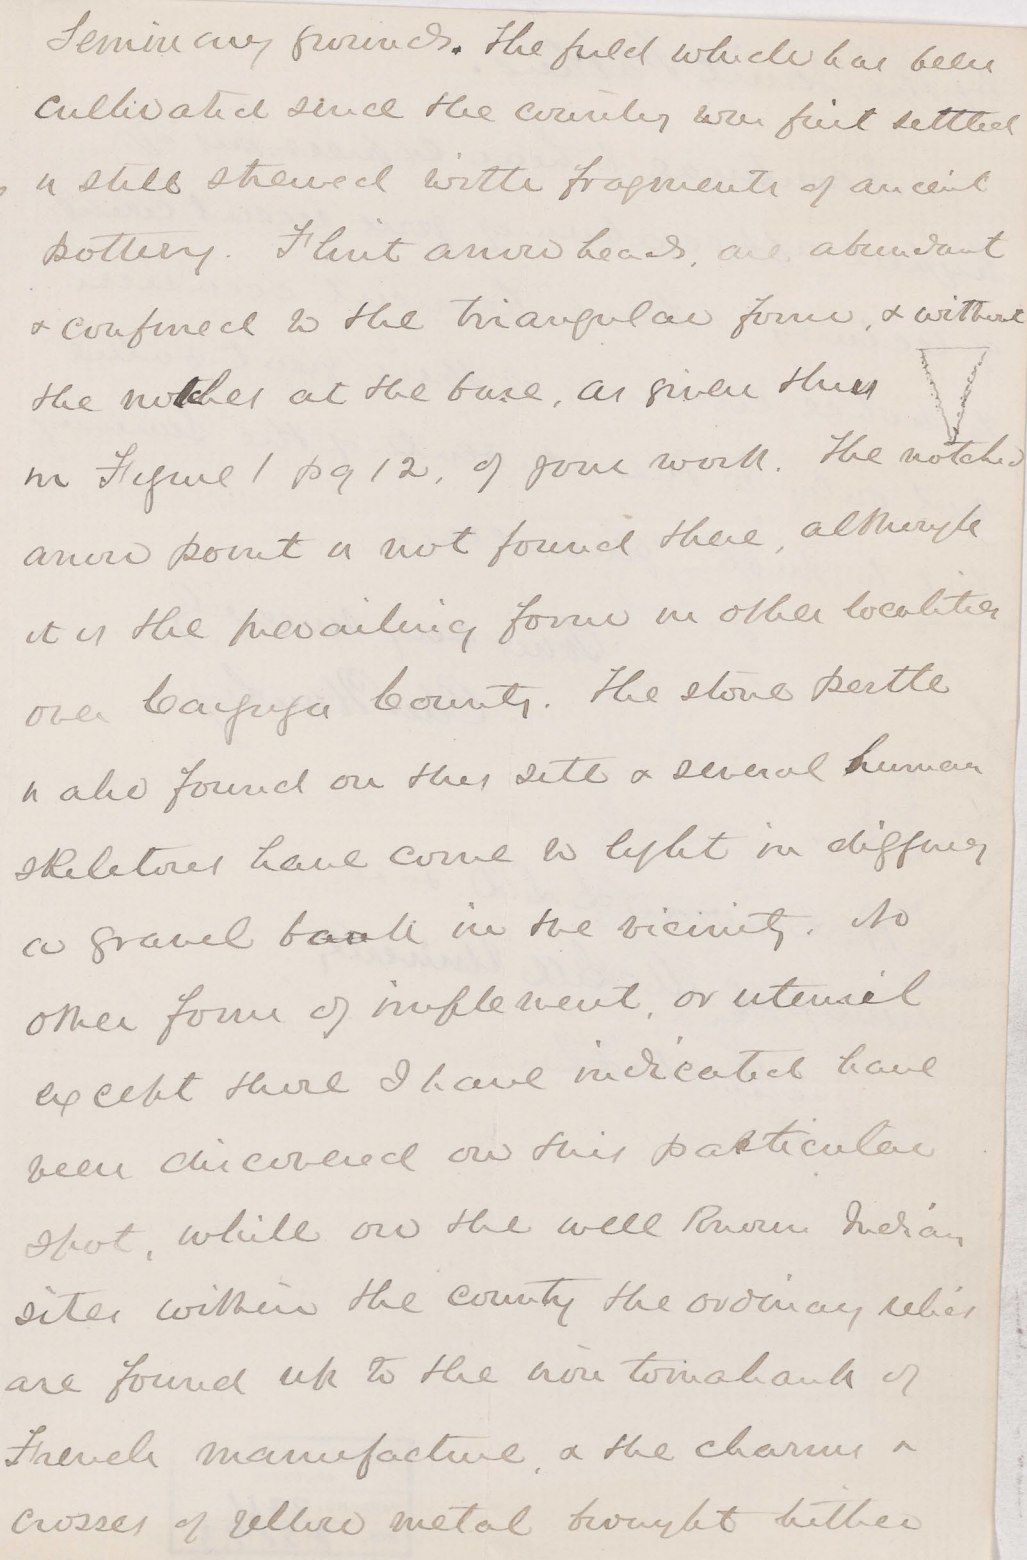 Seminary grounds. The field which has been
cultivated since the country was first settled
is still strewed with fragments of ancient
pottery. Flint arrow heads, are abundant
& confined to the triangular form, & without
the notches at the base, as given thus
in Figure 1 pg 12, of your work. The notched
arrow point is not found there, although
it is the prevailing form in other localities
over Cayuga County. The stone pestle
is also found on this site & several human
skeletons have come to light in digging
a gravel bank in the vicinity. No
other form of implement, or utensil
except those I have indicated have
been discovered on this particular
spot, while on the well known Indian
sites within the county the ordinary relics
are found up to the iron tomahawk of
French manufacture, & the charms &
crosses of yellow metal brought hither